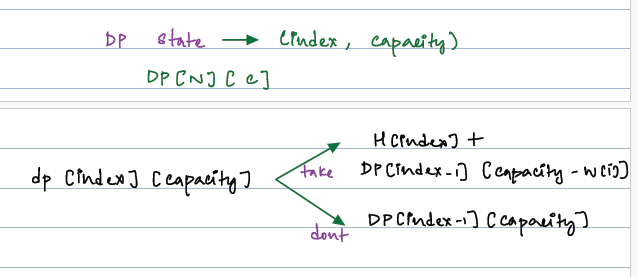 DP state → (index, capacity)
DP[N][C]
H[index] +
dp [index] [capacity] take DP[index-1] [capacity - W[i]]
dont DP[index-1] [capacity]